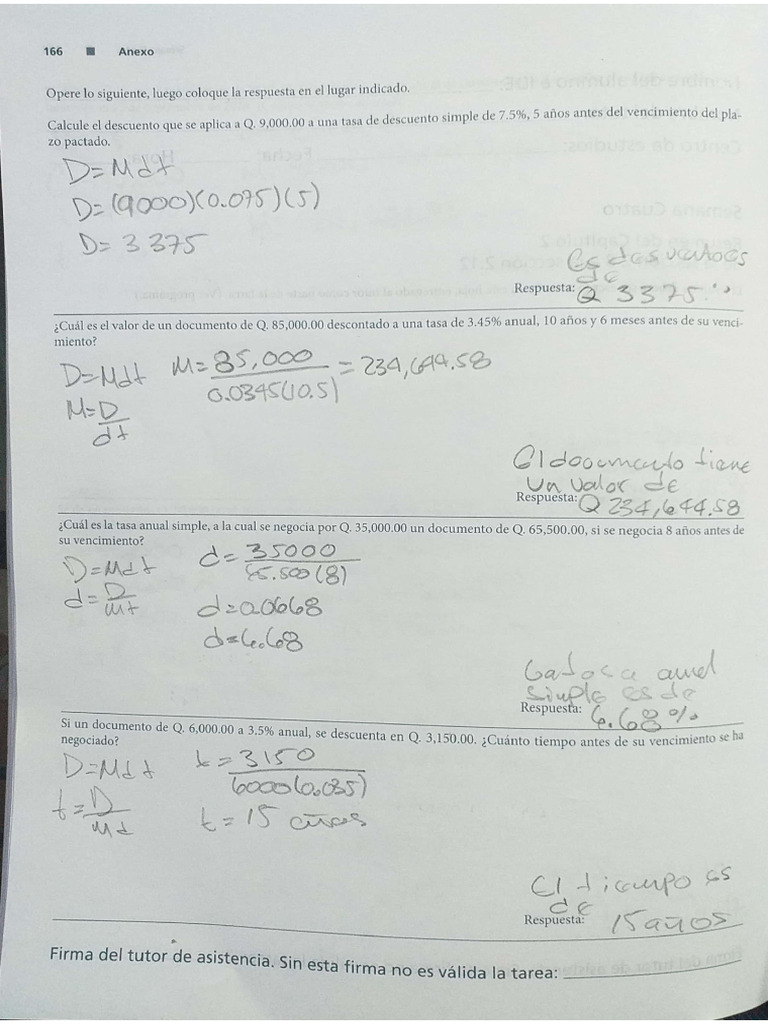 166 ■ Anexo
Opere lo siguiente, luego coloque la respuesta en el lugar indicado.
Calcule el descuento que se aplica a Q. 9,000.00 a una tasa de descuento simple de 7.5%, 5 años antes del vencimiento del pla-
zo pactado.
D=Mdt
D=(9000)(0.075)(5)
D= 3 375
de
Respuesta: Q 3375.
¿Cuál es el valor de un documento de Q. 85,000.00 descontado a una tasa de 3.45% anual, 10 años y 6 meses antes de su venci-
miento?
D=Mdt M= 85,000 = 234,644.58
0.0345(10.5)
M= D
dt
El documento tiene
un valor de
Respuesta: Q 234,644.58
¿Cuál es la tasa anual simple, a la cual se negocia por Q. 35,000.00 un documento de Q. 65,500.00, si se negocia 8 años antes de
su vencimiento?
D=Mdt d= 35000
65.500(8)
d= D
Mt
d=0.0668
d=6.68
simple es de
Respuesta: 6.68%
Si un documento de Q. 6,000.00 a 3.5% anual, se descuenta en Q. 3,150.00. ¿Cuánto tiempo antes de su vencimiento se ha
negociado?
D=Mdt t= 3150
6000(0.035)
t= D
Md
t= 15 años
El tiempo es
de
Respuesta: 15 años
Firma del tutor de asistencia. Sin esta firma no es válida la tarea: